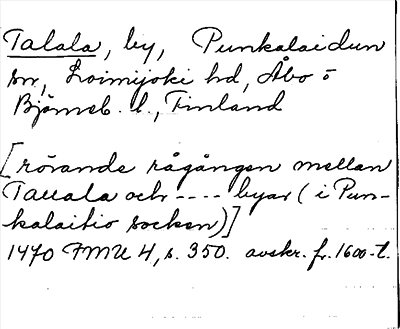 Talala, by, Punkalaidun
sn, Loimijoki hd, Åbo o
Björneb. l., Finland
[rörande rågången mellan
Tauala och ---- byar (i Pun-
kalaitio socken)]
1470 FMU 4, s. 350. avskr. fr. 1600-t.